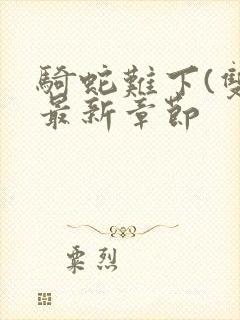 騎蛇難下(雙
最新章節
粟烈